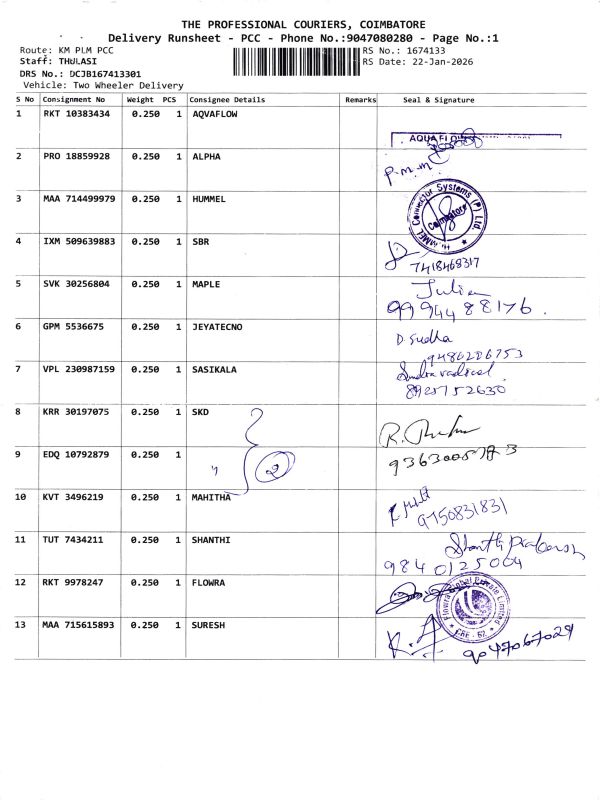 THE PROFESSIONAL COURIERS, COIMBATORE
Delivery Runsheet - PCC - Phone No.:9047080280 - Page No.:1
Route: KM PLM PCC
RS No.: 1674133
Staff: THULASI
RS Date: 22-Jan-2026
DRS No.: DCJB167413301
Vehicle: Two Wheeler Delivery
S No Consignment No Weight PCS Consignee Details Remarks Seal & Signature
1 RKT 10383434 0.250 1 AQVAFLOW
2 PRO 18859928 0.250 1 ALPHA
3 MAA 714499979 0.250 1 HUMMEL
Connector Systems (P) Ltd.
Coimbatore
4 IXM 509639883 0.250 1 SBR
7418468317
5 SVK 30256804 0.250 1 MAPLE
99944 88176.
6 GPM 5536675 0.250 1 JEYATECNO
D. Sudha
9486286753
7 VPL 230987159 0.250 1 SASIKALA
8 KRR 30197075 0.250 1 SKD
9 EDQ 10792879 0.250 1 " 2
10 KVT 3496219 0.250 1 MAHITHA
9750831831
11 TUT 7434211 0.250 1 SHANTHI
9840125004
12 RKT 9978247 0.250 1 FLOWRA
Flowra Global Private Limited
13 MAA 715615893 0.250 1 SURESH
9047067029